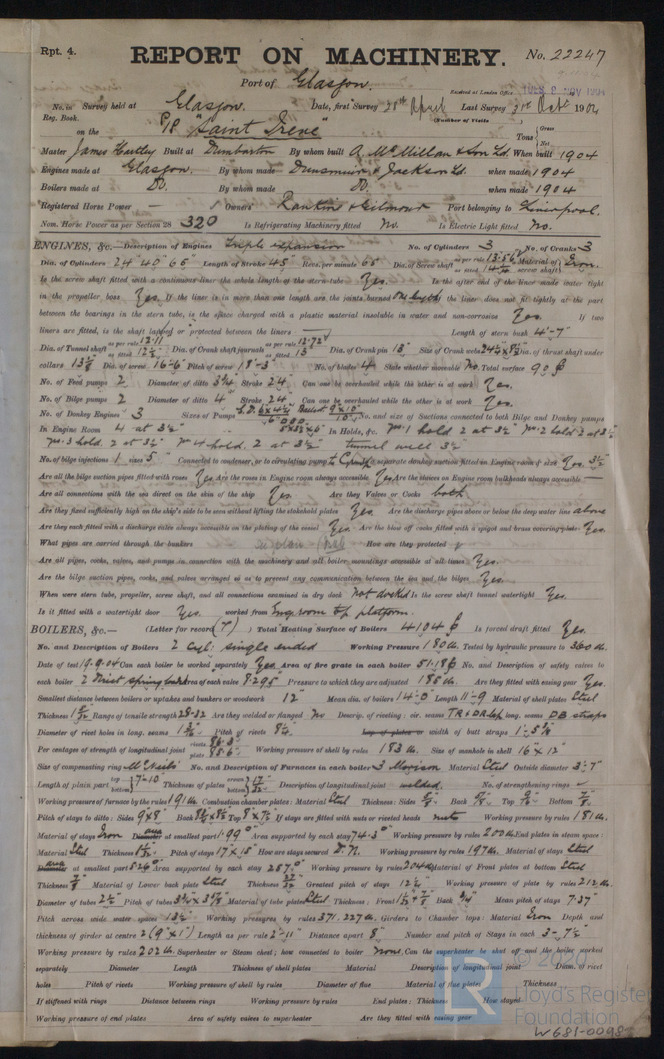 Rpt. 4.
REPORT ON MACHINERY.
No. 22247
Port of Glasgow.
Received at London Office TUES 8 NOV 1904
No. in Survey held at Glasgow. Date, first Survey 28th April Last Survey 31st Oct 1904
Reg. Book. (Number of Visits
on the S/S "Saint Irene" Tons Gross Net
Master James Hartley Built at Dumbarton By whom built A. McMillan & Son Ld. When built 1904
Engines made at Glasgow. By whom made Dunsmuir & Jackson Ld. when made 1904
Boilers made at Do. By whom made Do. when made 1904
Registered Horse Power — Owners Rankin & Gilmour Port belonging to Liverpool.
Nom. Horse Power as per Section 28 320 Is Refrigerating Machinery fitted No. Is Electric Light fitted No.
ENGINES, &c.—Description of Engines Triple expansion No. of Cylinders 3 No. of Cranks 3
Dia. of Cylinders 24" 40" 65" Length of Stroke 45" Revs. per minute 65 Dia. of Screw shaft as per rule 13.56" as fitted Material of screw shaft Iron.
Is the screw shaft fitted with a continuous liner the whole length of the stern tube Yes. Is the after end of the liner made water tight
in the propeller boss Yes. If the liner is in more than one length are the joints burned One length If the liner does not fit tightly at the part
between the bearings in the stern tube, is the space charged with a plastic material insoluble in water and non-corrosive Yes. If two
liners are fitted, is the shaft lapped or protected between the liners — Length of stern bush 4'-7"
Dia. of Tunnel shaft as per rule 12.11 as fitted 12½ Dia. of Crank shaft journals as per rule 12.72" as fitted 13" Dia. of Crank pin 13" Size of Crank webs Dia. of thrust shaft under
collars 13⅛ Dia. of screw 16-6 Pitch of screw 18-3 No. of blades 4 State whether moveable No. Total surface 90
No. of Feed pumps 2 Diameter of ditto 3¾ Stroke 24 Can one be overhauled while the other is at work Yes.
No. of Bilge pumps 2 Diameter of ditto 4" Stroke 24 Can one be overhauled while the other is at work Yes.
No. of Donkey Engines 3 Sizes of Pumps No. and size of Suctions connected to both Bilge and Donkey pumps
In Engine Room 4 at 3½" In Holds, &c. No. 1 hold 2 at 3½" No. 2 hold 2 at 3½"
No. 3 hold. 2 at 3½" No. 4 hold. 2 at 3½" tunnel well 3½
No. of bilge injections 1 sizes 5" Connected to condenser, or to circulating pump Is a separate donkey suction fitted in Engine room & size Yes. 3½
Are all the bilge suction pipes fitted with roses Yes Are the roses in Engine room always accessible Yes Are the sluices on Engine room bulkheads always accessible —
Are all connections with the sea direct on the skin of the ship Yes. Are they Valves or Cocks both
Are they fixed sufficiently high on the ship's side to be seen without lifting the stokehold plates Yes Are the discharge pipes above or below the deep water line above
Are they each fitted with a discharge valve always accessible on the plating of the vessel Yes Are the blow off cocks fitted with a spigot and brass covering plate Yes.
What pipes are carried through the bunkers How are they protected
Are all pipes, cocks, valves, and pumps in connection with the machinery and all boiler mountings accessible at all times Yes.
Are the bilge suction pipes, cocks, and valves arranged so as to prevent any communication between the sea and the bilges Yes.
When were stern tube, propeller, screw shaft, and all connections examined in dry dock Not docked Is the screw shaft tunnel watertight Yes.
Is it fitted with a watertight door Yes. worked from Eng room top platform.
BOILERS, &c.— (Letter for record (T) Total Heating Surface of Boilers 4104 Is forced draft fitted Yes.
No. and Description of Boilers 2 Cyl: single ended Working Pressure 180 lb. Tested by hydraulic pressure to 360 lb.
Date of test 19.9.04 Can each boiler be worked separately Yes Area of fire grate in each boiler 51.18 No. and Description of safety valves to
each boiler 2 Direct spring loaded Area of each valve 8.295 Pressure to which they are adjusted 185 lb. Are they fitted with easing gear Yes.
Smallest distance between boilers or uptakes and bunkers or woodwork 12" Mean dia. of boilers 14'-0" Length 11'-9 Material of shell plates Steel
Thickness Range of tensile strength 28-32 Are they welded or flanged No Descrip. of riveting: cir. seams long. seams DB straps
Diameter of rivet holes in long. seams Pitch of rivets Lap of plates or width of butt straps
Per centages of strength of longitudinal joint rivets 86.3 plate 85.6 Working pressure of shell by rules 183 lb. Size of manhole in shell 16" x 12"
Size of compensating ring McNeil's No. and Description of Furnaces in each boiler 3 Morison Material Steel Outside diameter 3'-7"
Length of plain part top 7-10 bottom Thickness of plates crown bottom 17/32 Description of longitudinal joint welded. No. of strengthening rings —
Working pressure of furnace by the rules 191 lb. Combustion chamber plates: Material Steel Thickness: Sides Back Top Bottom
Pitch of stays to ditto: Sides 9 x 8" Back Top If stays are fitted with nuts or riveted heads nuts Working pressure by rules 181 lb.
Material of stays Iron Diameter area at smallest part 1.99 Area supported by each stay 74.3 Working pressure by rules 200 lb. End plates in steam space:
Material Steel Thickness Pitch of stays 17" x 15" How are stays secured D.N. Working pressure by rules 197 lb. Material of stays Steel
Diameter area at smallest part Area supported by each stay 257 Working pressure by rules 204 lb. Material of Front plates at bottom Steel
Thickness Material of Lower back plate Steel Thickness Greatest pitch of stays 12¼ Working pressure of plate by rules 212 lb.
Diameter of tubes 2½" Pitch of tubes Material of tube plates Steel Thickness: Front Back Mean pitch of stays 7.37
Pitch across wide water spaces 13½ Working pressures by rules 371. 227 lb. Girders to Chamber tops: Material Iron Depth and
thickness of girder at centre 2 (9" x 1") Length as per rule 2'-11" Distance apart 8" Number and pitch of Stays in each 3 - 7½"
Working pressure by rules 202 lb. Superheater or Steam chest; how connected to boiler None. Can the superheater be shut off and the boiler worked
separately Diameter Length Thickness of shell plates Material Description of longitudinal joint Diam. of rivet
holes Pitch of rivets Working pressure of shell by rules Diameter of flue Material of flue plates Thickness
If stiffened with rings Distance between rings Working pressure by rules End plates: Thickness How stayed
Working pressure of end plates Area of safety valves to superheater Are they fitted with easing gear
© 2020
Lloyd's Register
Foundation
W681-0098